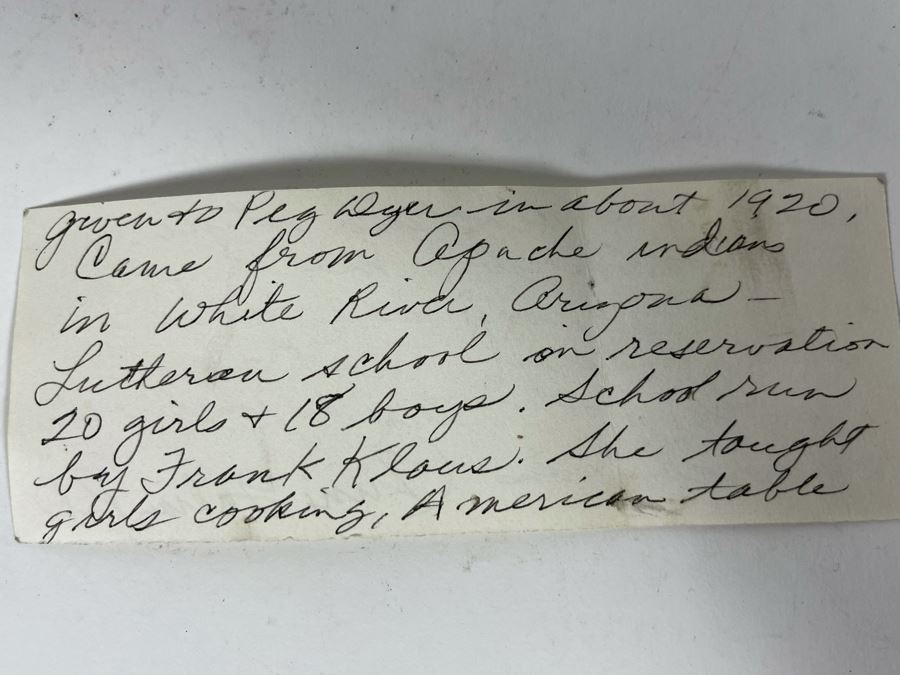 given to Peg Dyer in about 1920,
Came from Apache indians
in White River, Arizona -
Lutheran school on reservation
20 girls + 18 boys. School run
by Frank Klaus. She tought
girls cooking, American table